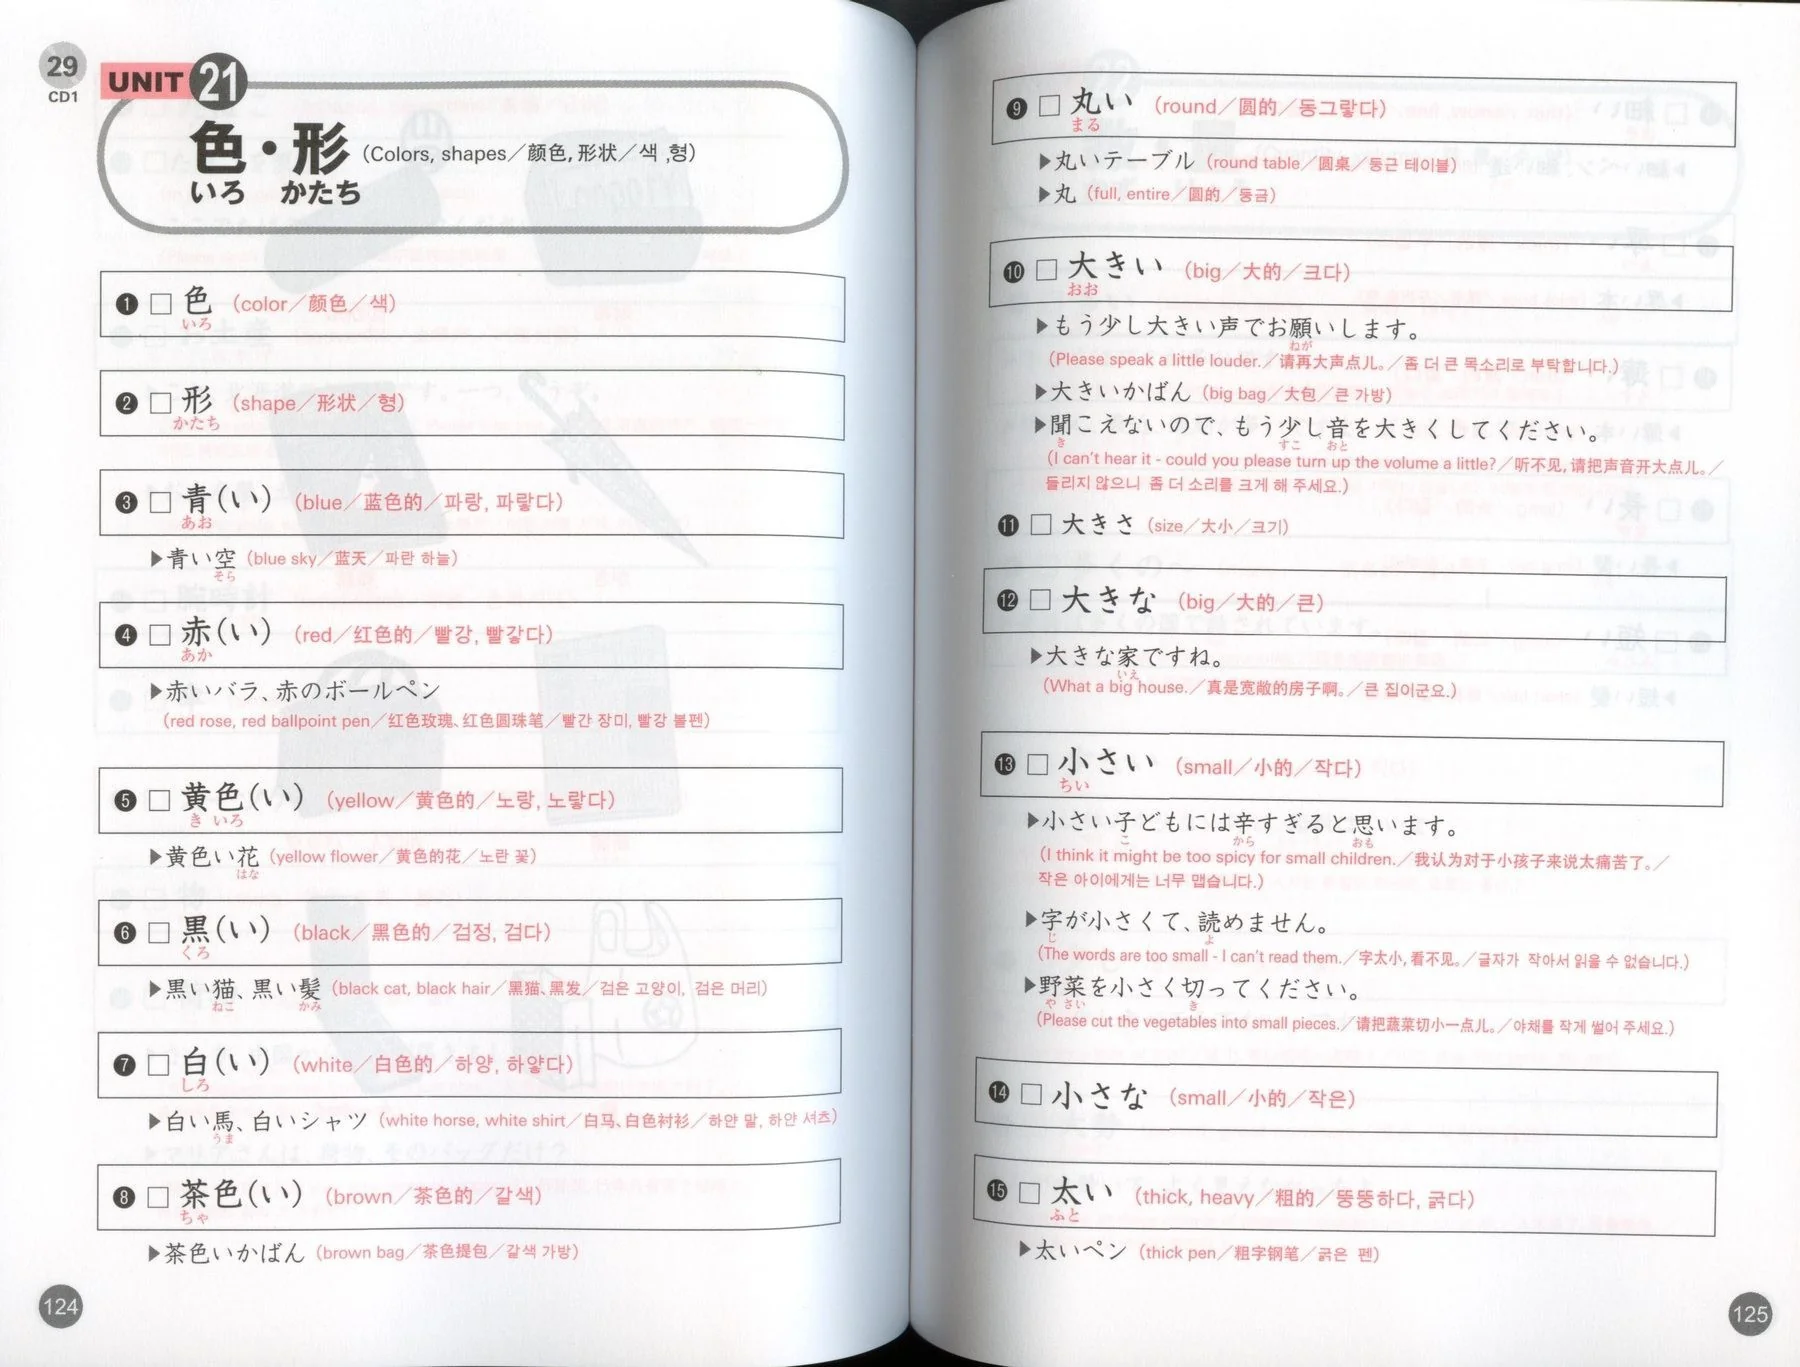 29
CD1
UNIT 21
色・形 (Colors, shapes／颜色，形状／색 ,형)
いろ かたち
❶ □ 色 (color／颜色／색)
いろ
❷ □ 形 (shape／形状／형)
かたち
❸ □ 青(い) (blue／蓝色的／파랑, 파랗다)
あお
▶青い空 (blue sky／蓝天／파란 하늘)
そら
❹ □ 赤(い) (red／红色的／빨강, 빨갛다)
あか
▶赤いバラ、赤のボールペン
(red rose, red ballpoint pen／红色玫瑰、红色圆珠笔／빨간 장미, 빨강 볼펜)
❺ □ 黄色(い) (yellow／黄色的／노랑, 노랗다)
き いろ
▶黄色い花 (yellow flower／黄色的花／노란 꽃)
はな
❻ □ 黒(い) (black／黑色的／검정, 검다)
くろ
▶黒い猫、黒い髪 (black cat, black hair／黑猫、黑发／검은 고양이, 검은 머리)
ねこ かみ
❼ □ 白(い) (white／白色的／하양, 하얗다)
しろ
▶白い馬、白いシャツ (white horse, white shirt／白马、白色衬衫／하얀 말, 하얀 셔츠)
うま
❽ □ 茶色(い) (brown／茶色的／갈색)
ちゃ
▶茶色いかばん (brown bag／茶色提包／갈색 가방)
124
❾ □ 丸い (round／圆的／둥그랗다)
まる
▶丸いテーブル (round table／圆桌／둥근 테이블)
▶丸 (full, entire／圆的／둥금)
❿ □ 大きい (big／大的／크다)
おお
▶もう少し大きい声でお願いします。
ねが
(Please speak a little louder.／请再大声点儿。／좀 더 큰 목소리로 부탁합니다.)
▶大きいかばん (big bag／大包／큰 가방)
▶聞こえないので、もう少し音を大きくしてください。
き すこ おと
(I can't hear it - could you please turn up the volume a little?／听不见，请把声音开大点儿。／
들리지 않으니 좀 더 소리를 크게 해 주세요.)
⓫ □ 大きさ (size／大小／크기)
⓬ □ 大きな (big／大的／큰)
▶大きな家ですね。
いえ
(What a big house.／真是宽敞的房子啊。／큰 집이군요.)
⓭ □ 小さい (small／小的／작다)
ちい
▶小さい子どもには辛すぎると思います。
こ から おも
(I think it might be too spicy for small children.／我认为对于小孩子来说太痛苦了。／
작은 아이에게는 너무 맵습니다.)
▶字が小さくて、読めません。
じ よ
(The words are too small - I can't read them.／字太小，看不见。／글자가 작아서 읽을 수 없습니다.)
▶野菜を小さく切ってください。
や さい き
(Please cut the vegetables into small pieces.／请把蔬菜切小一点儿。／야채를 작게 썰어 주세요.)
⓮ □ 小さな (small／小的／작은)
⓯ □ 太い (thick, heavy／粗的／뚱뚱하다, 굵다)
ふと
▶太いペン (thick pen／粗字钢笔／굵은 펜)
125